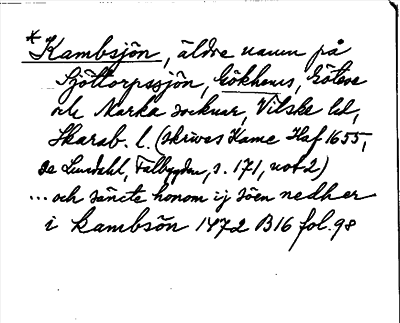 * Kambsjön, äldre namn på
Sjötorpssjön, Gökhems, Göteve
och Marka socknar, Vilske hd,
Skarab. l. (skrives Kame Haf 1655,
se Lundahl, Falbygden, s. 171, not 2)
... och säncte honom ij söen nedher
i kambsön 1472 B16 fol. 98